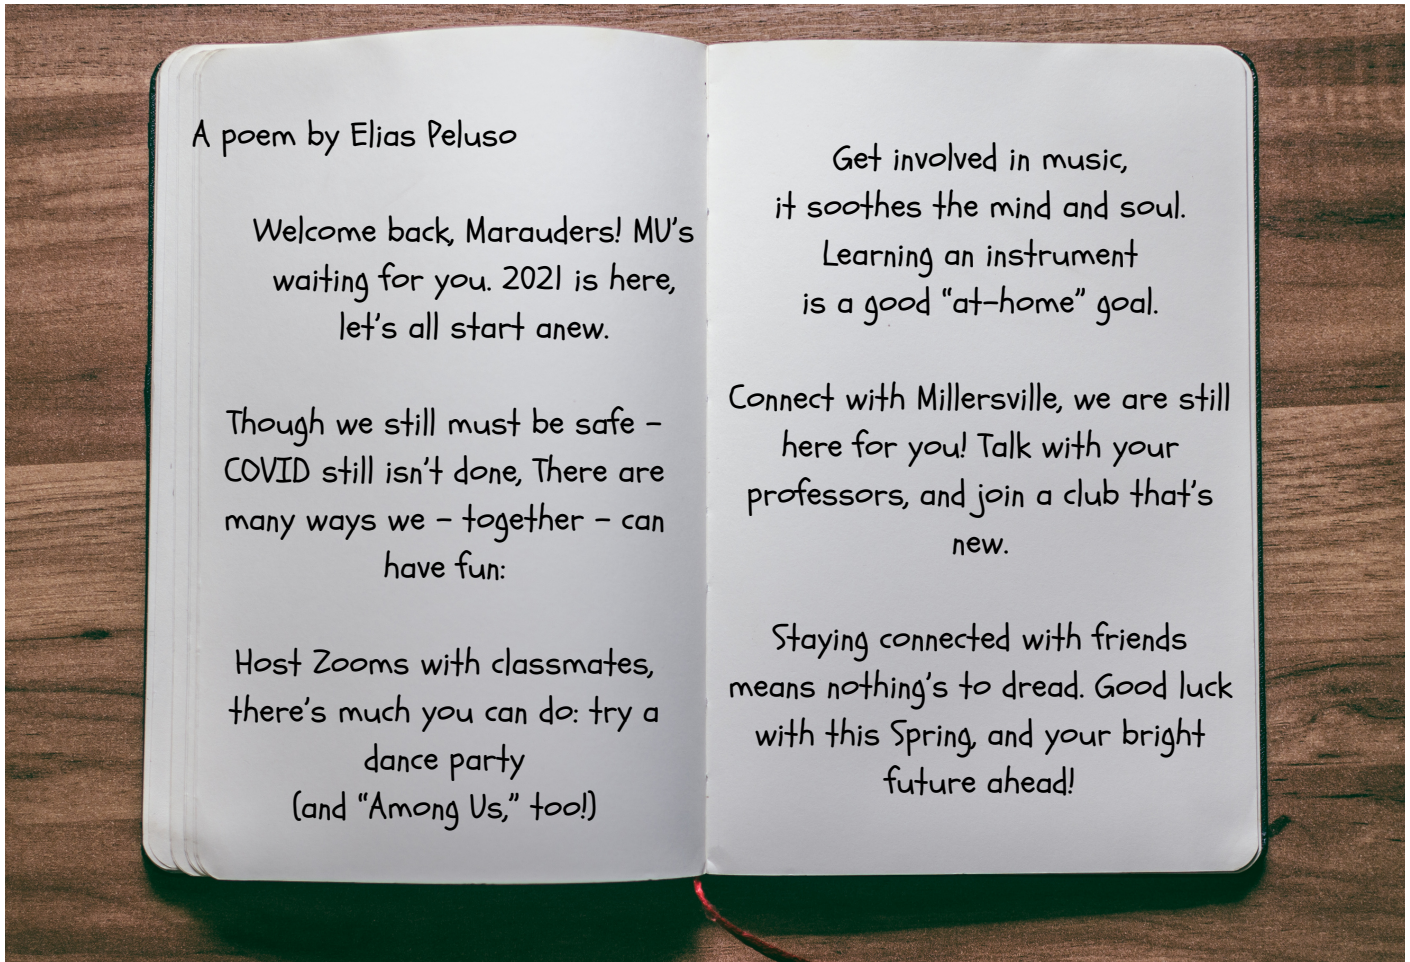 A poem by Elias Peluso
Welcome back, Marauders! MU's
waiting for you. 2021 is here,
let's all start anew.
Though we still must be safe –
COVID still isn't done, There are
many ways we – together – can
have fun:
Host Zooms with classmates,
there's much you can do: try a
dance party
(and "Among Us," too!)
Get involved in music,
it soothes the mind and soul.
Learning an instrument
is a good "at-home" goal.
Connect with Millersville, we are still
here for you! Talk with your
professors, and join a club that's
new.
Staying connected with friends
means nothing's to dread. Good luck
with this Spring, and your bright
future ahead!